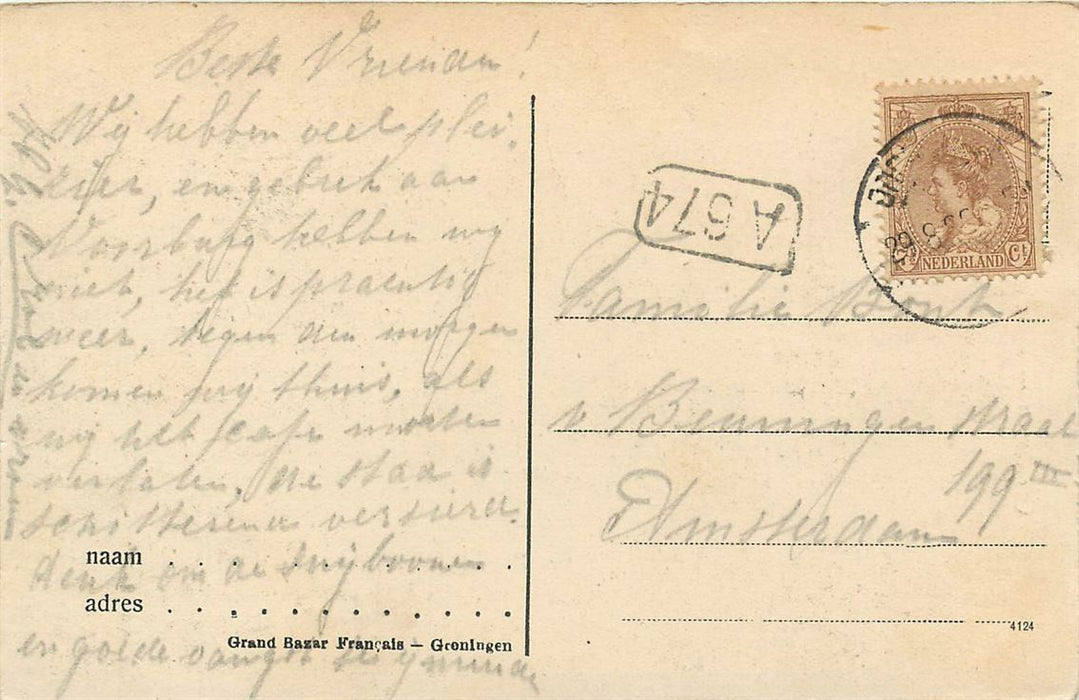 Beste Vrienden!
Wij hebben veel plei,
zier, en gebrek aan
Voorburg hebben wij
niet, het is prachtig
weer, tegen den morgen
komen wij thuis, als
wij het cafe moeten
verlaten, de stad is
schitterend versierd.
denk om de snijboonen
en goede vangst
naam
adres
Grand Bazar Français — Groningen
A 674
29
NEDERLAND
Ct
Familie Bonk
v Beuningen straat
199 III
Amsterdam
4124